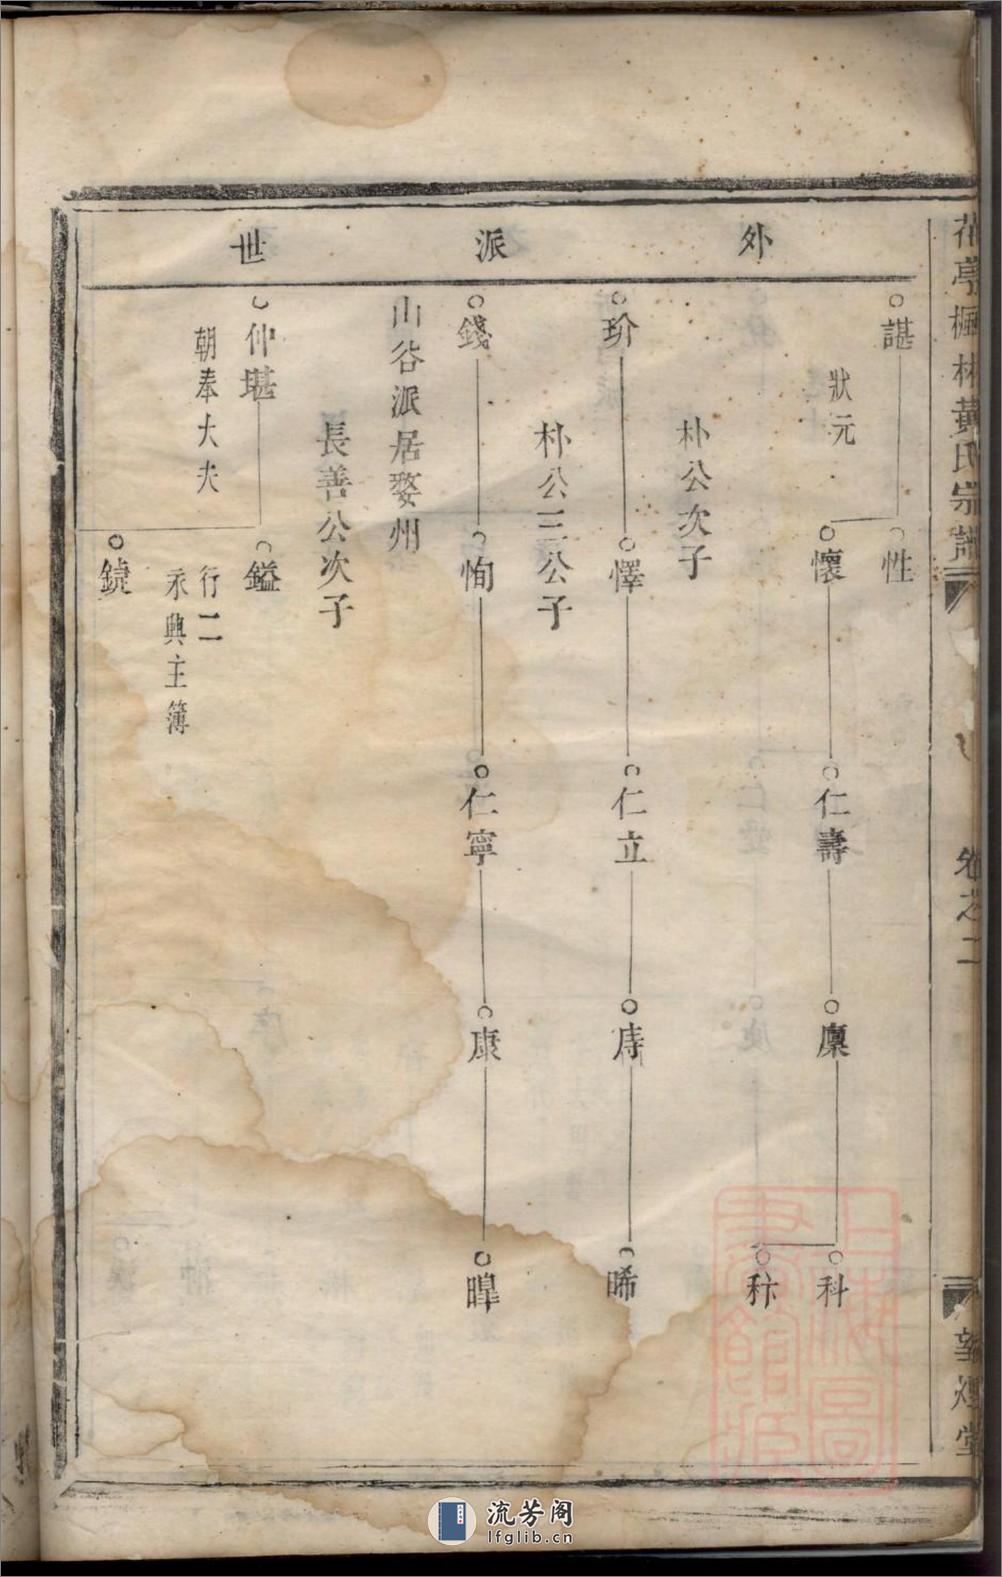 外派世
諶
狀元
性
懷
仁壽
廩
科
秋
玠
朴公次子
懌
仁立
庤
晞
錢
朴公三公子
恂
仁寧
康
暭
山谷派居婺州
仲堪
朝奉大夫
長善公次子
鎰
行二
永興主簿
鐃
花亭楓林黃氏宗譜
卷之二
敦煌堂
上海圖書館藏
流芳阁
lfglib.cn